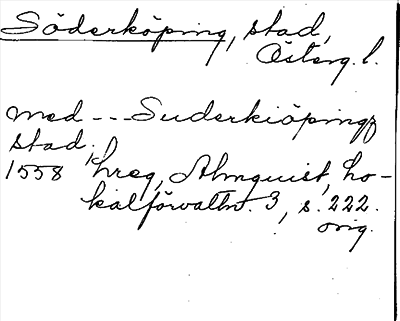 Söderköping, stad,
Österg. l.
med - - - Suderkiöpingz
stad.
1558 hreg, Almquist, Lo-
kalförvaltn. 3, s. 222.
orig.